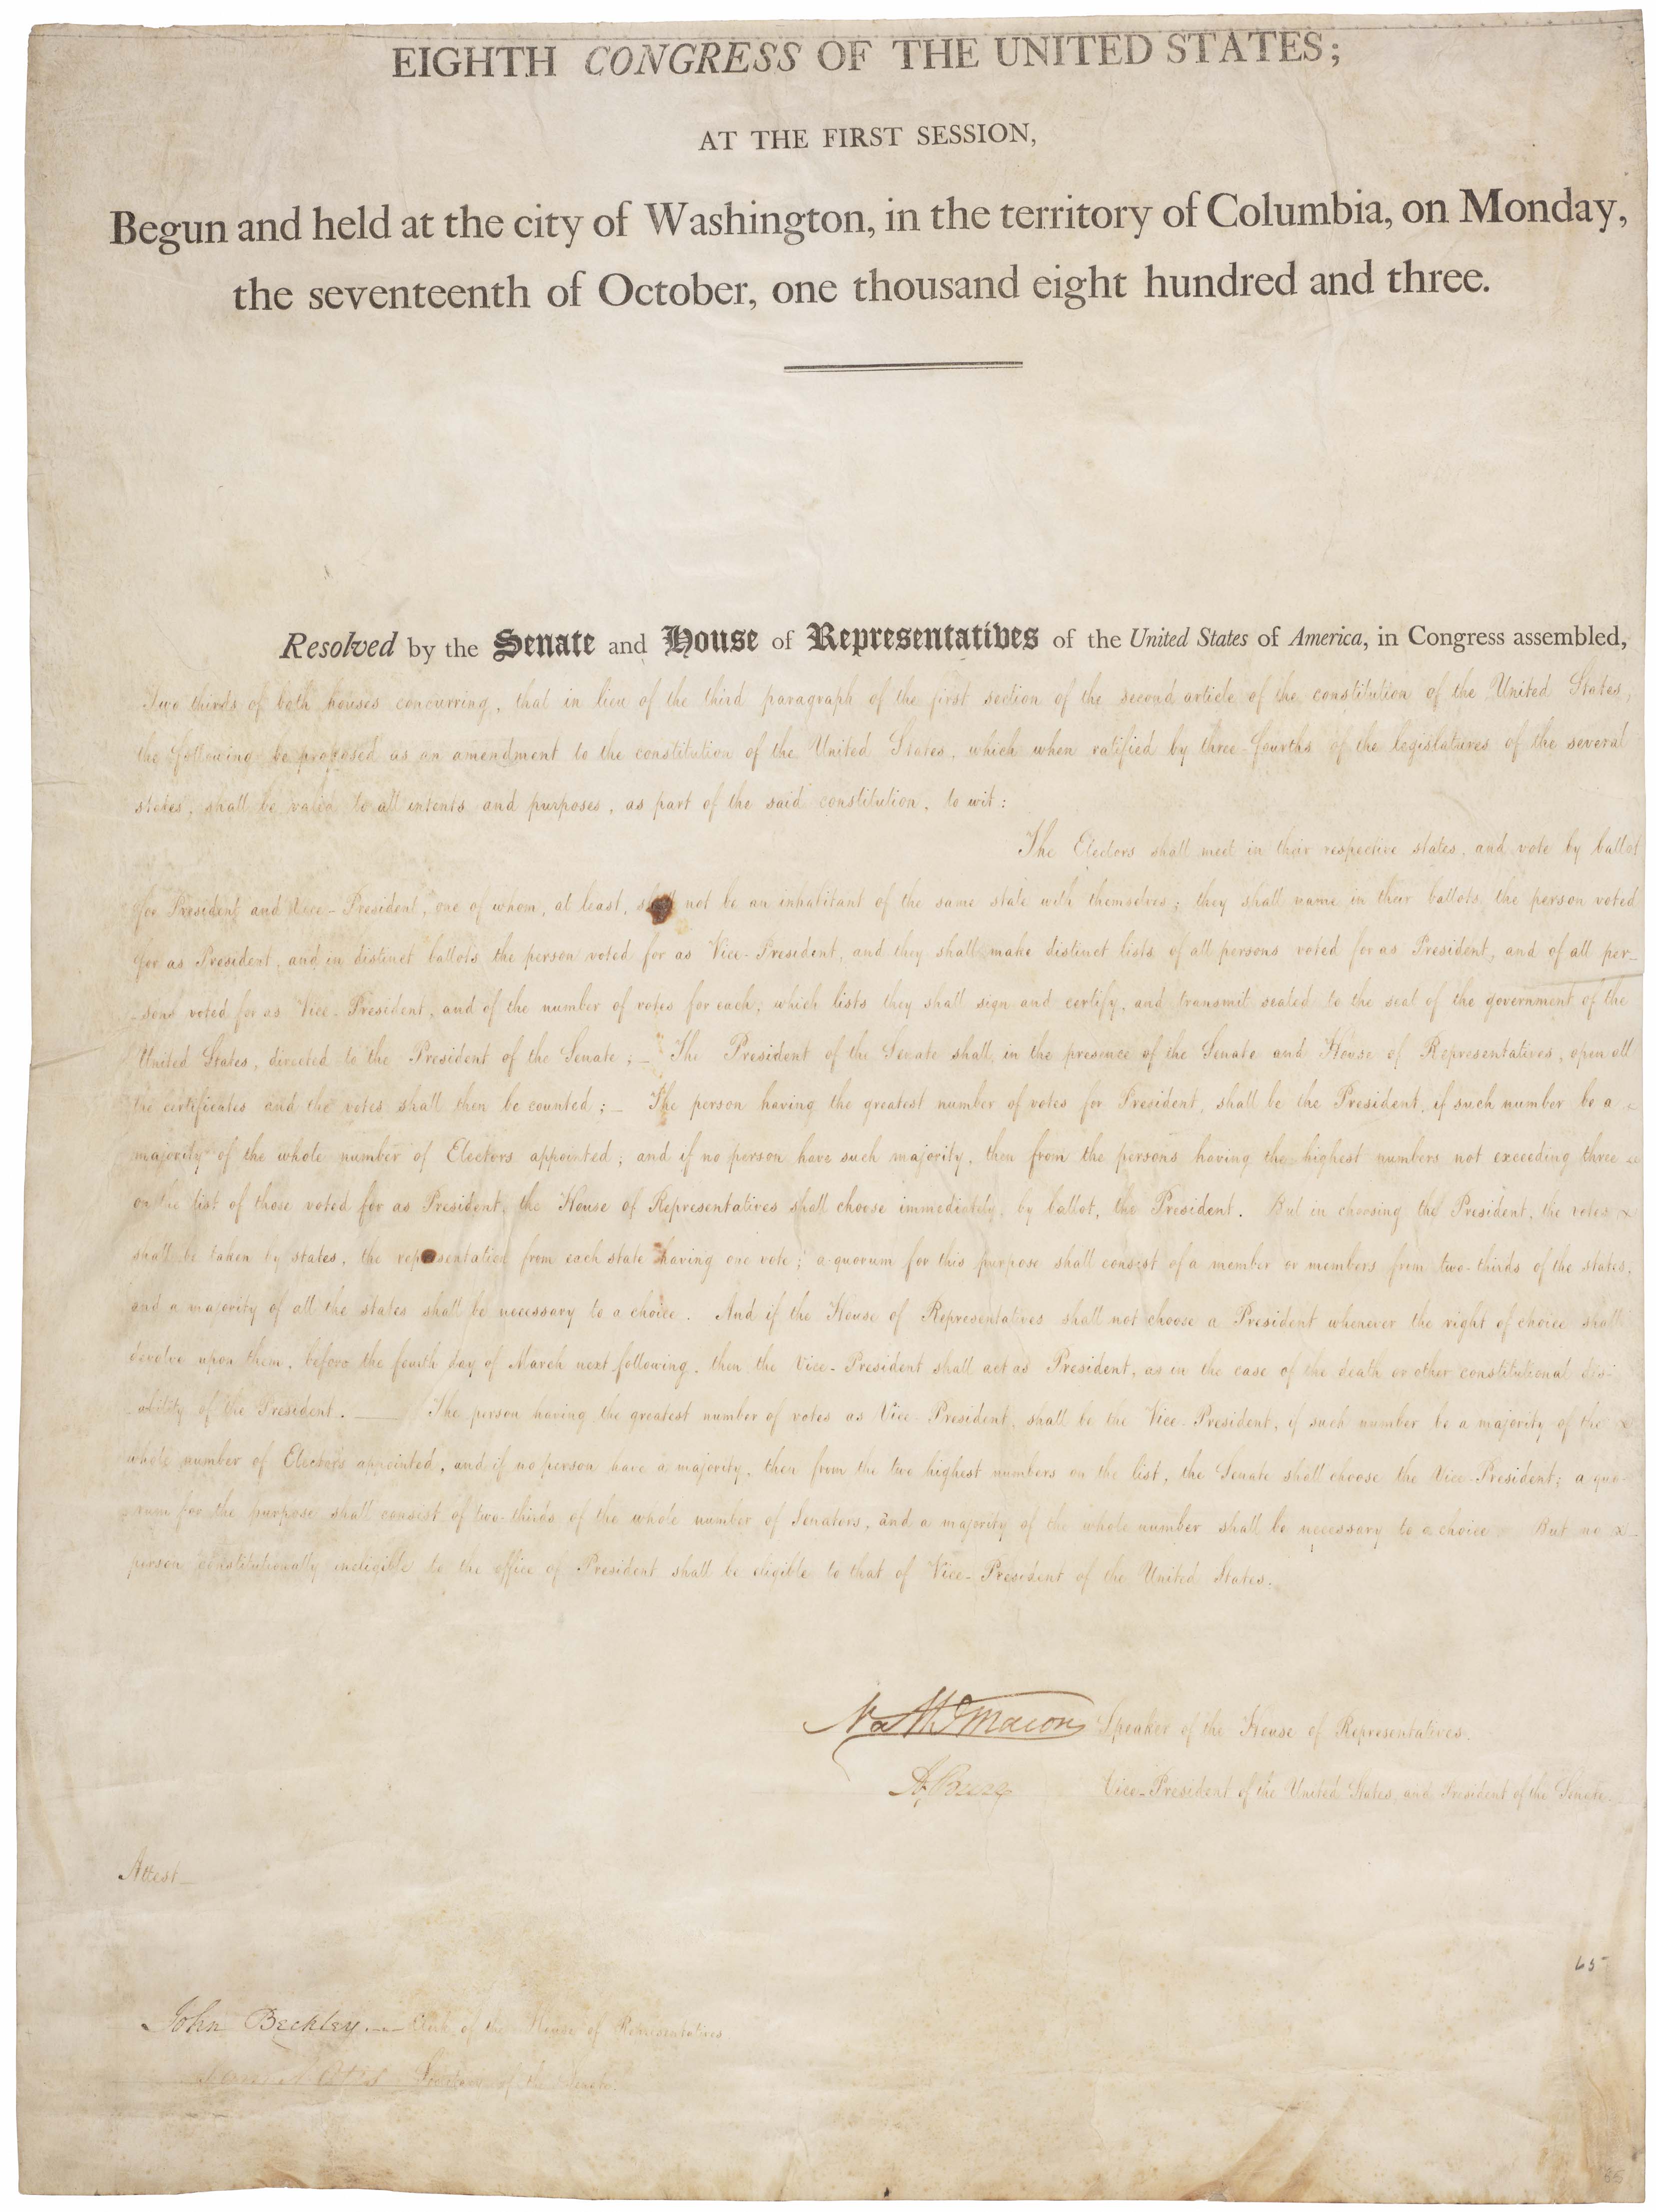 EIGHTH CONGRESS OF THE UNITED STATES;
AT THE FIRST SESSION,
Begun and held at the city of Washington, in the territory of Columbia, on Monday,
the seventeenth of October, one thousand eight hundred and three.
Resolved by the Senate and House of Representatives of the United States of America, in Congress assembled,
Two thirds of both houses concurring, that in lieu of the third paragraph of the first section of the second article of the constitution of the United States,
the following be proposed as an amendment to the constitution of the United States, which when ratified by three-fourths of the legislatures of the several
states, shall be valid to all intents and purposes, as part of the said constitution, to wit:
The Electors shall meet in their respective states, and vote by ballot
for President and Vice-President, one of whom, at least, shall not be an inhabitant of the same state with themselves; they shall name in their ballots the person voted
for as President, and in distinct ballots the person voted for as Vice-President, and they shall make distinct lists of all persons voted for as President, and of all per-
-sons voted for as Vice-President, and of the number of votes for each, which lists they shall sign and certify, and transmit sealed to the seat of the government of the
United States, directed to the President of the Senate;— The President of the Senate shall, in the presence of the Senate and House of Representatives, open all
the certificates and the votes shall then be counted;— The person having the greatest number of votes for President, shall be the President, if such number be a
majority of the whole number of Electors appointed; and if no person have such majority, then from the persons having the highest numbers not exceeding three
on the list of those voted for as President, the House of Representatives shall choose immediately, by ballot, the President. But in choosing the President, the votes
shall be taken by states, the representation from each state having one vote; a quorum for this purpose shall consist of a member or members from two-thirds of the states,
and a majority of all the states shall be necessary to a choice. And if the House of Representatives shall not choose a President whenever the right of choice shall
devolve upon them, before the fourth day of March next following, then the Vice-President shall act as President, as in the case of the death or other constitutional dis-
-ability of the President.— The person having the greatest number of votes as Vice-President, shall be the Vice-President, if such number be a majority of the
whole number of Electors appointed, and if no person have a majority, then from the two highest numbers on the list, the Senate shall choose the Vice-President; a quo-
-rum for the purpose shall consist of two-thirds of the whole number of Senators, and a majority of the whole number shall be necessary to a choice. But no
person constitutionally ineligible to the office of President shall be eligible to that of Vice-President of the United States.
Nathl Macon Speaker of the House of Representatives.
A. Burr Vice-President of the United States, and President of the Senate.
Attest—
65
John Beckley.— Clerk of the House of Representatives
Sam A Otis Secretary of the Senate.